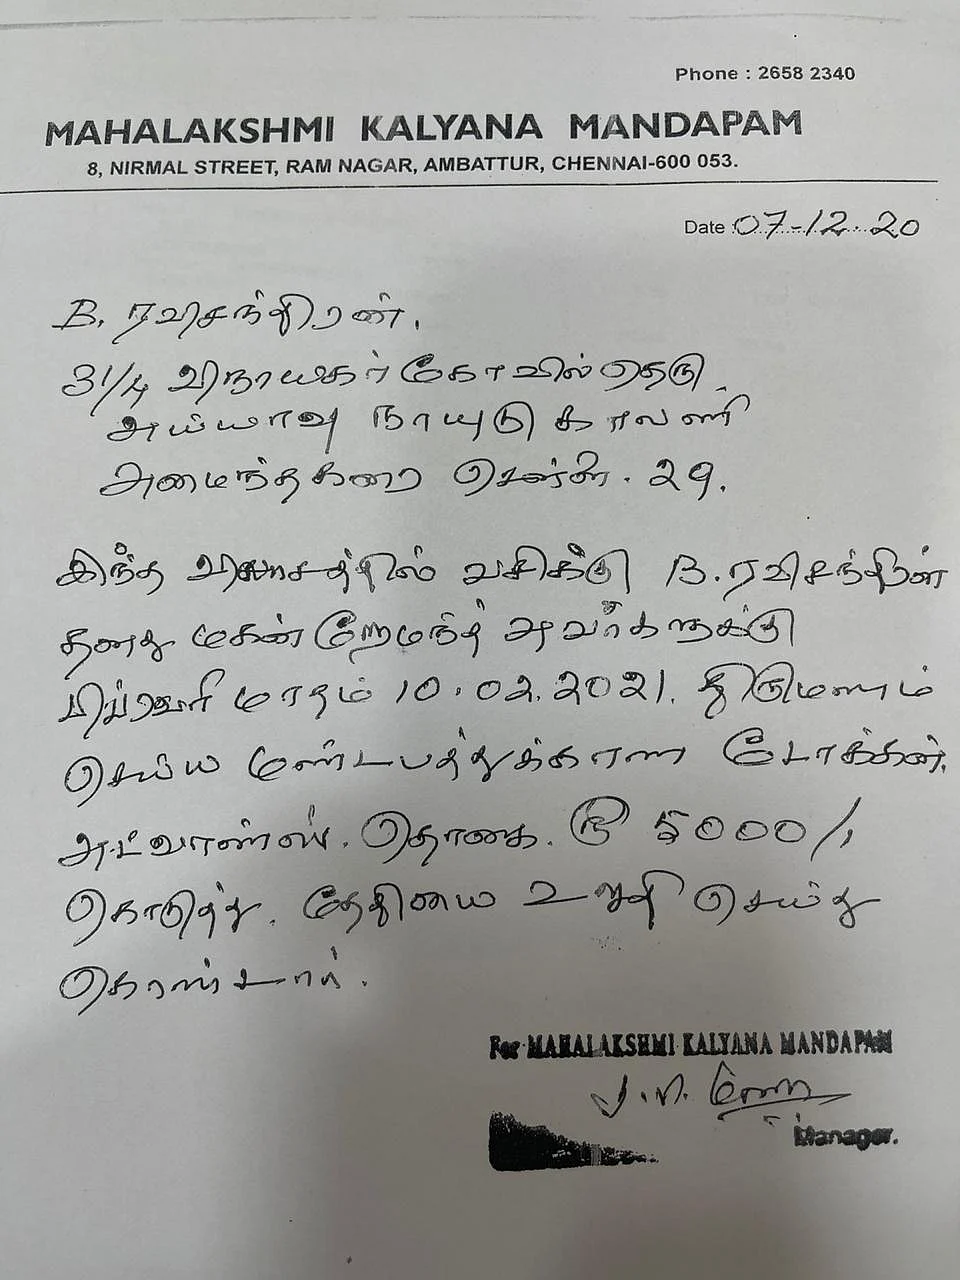 Phone : 2658 2340
MAHALAKSHMI KALYANA MANDAPAM
8, NIRMAL STREET, RAM NAGAR, AMBATTUR, CHENNAI-600 053.
Date : 07-12-20
B. ரவிசந்திரன்.
31/4 விநாயகர் கோவில் தெரு.
அய்யாவு நாயுடு காலனி
அமைந்தகரை சென்னை. 29.
இந்த விலாசத்தில் வசிக்கு B. ரவிசந்திரன்
தனது மகன் ஹேமந்த் அவர்களுக்கு
பிப்ரவரி மாதம் 10.02.2021. திருமணம்
செய்ய மண்டபத்துக்கான டோக்கன்.
அட்வான்ஸ். தொகை. ரூ 5000/.
கொடுத்து. தேதியை உறுதி செய்து
கொண்டார்.
For MAHALAKSHMI KALYANA MANDAPAM
Manager.